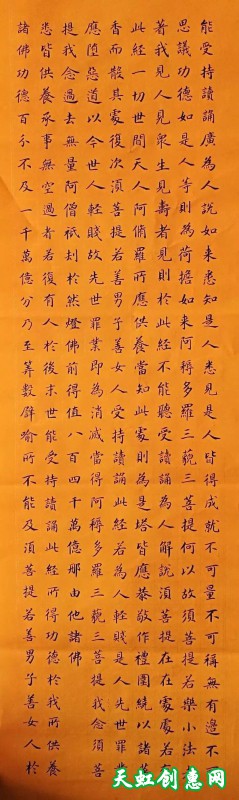 能受持讀誦廣為人說如來悉知是人悉見是人皆得成就不可量不可稱無有邊不可
思議功德如是人等則為荷擔如來阿耨多羅三藐三菩提何以故須菩提若樂小法者
著我見人見眾生見壽者見則於此經不能聽受讀誦為人解說須菩提在在處處若有
此經一切世間天人阿修羅所應供養當知此處則為是塔皆應恭敬作禮圍繞以諸華
香而散其處復次須菩提若善男子善女人受持讀誦此經若為人輕賤是人先世罪業
應墮惡道以今世人輕賤故先世罪業即為消滅當得阿耨多羅三藐三菩提我念須菩
提我念過去無量阿僧祇劫於然燈佛前得值八百四千萬億那由他諸佛
悉皆供養承事無空過者若復有人於後末世能受持讀誦此經所得功德於我所供養
諸佛功德百分不及一千萬億分乃至筭數譬喻所不能及須菩提若善男子善女人於
天虹创意网